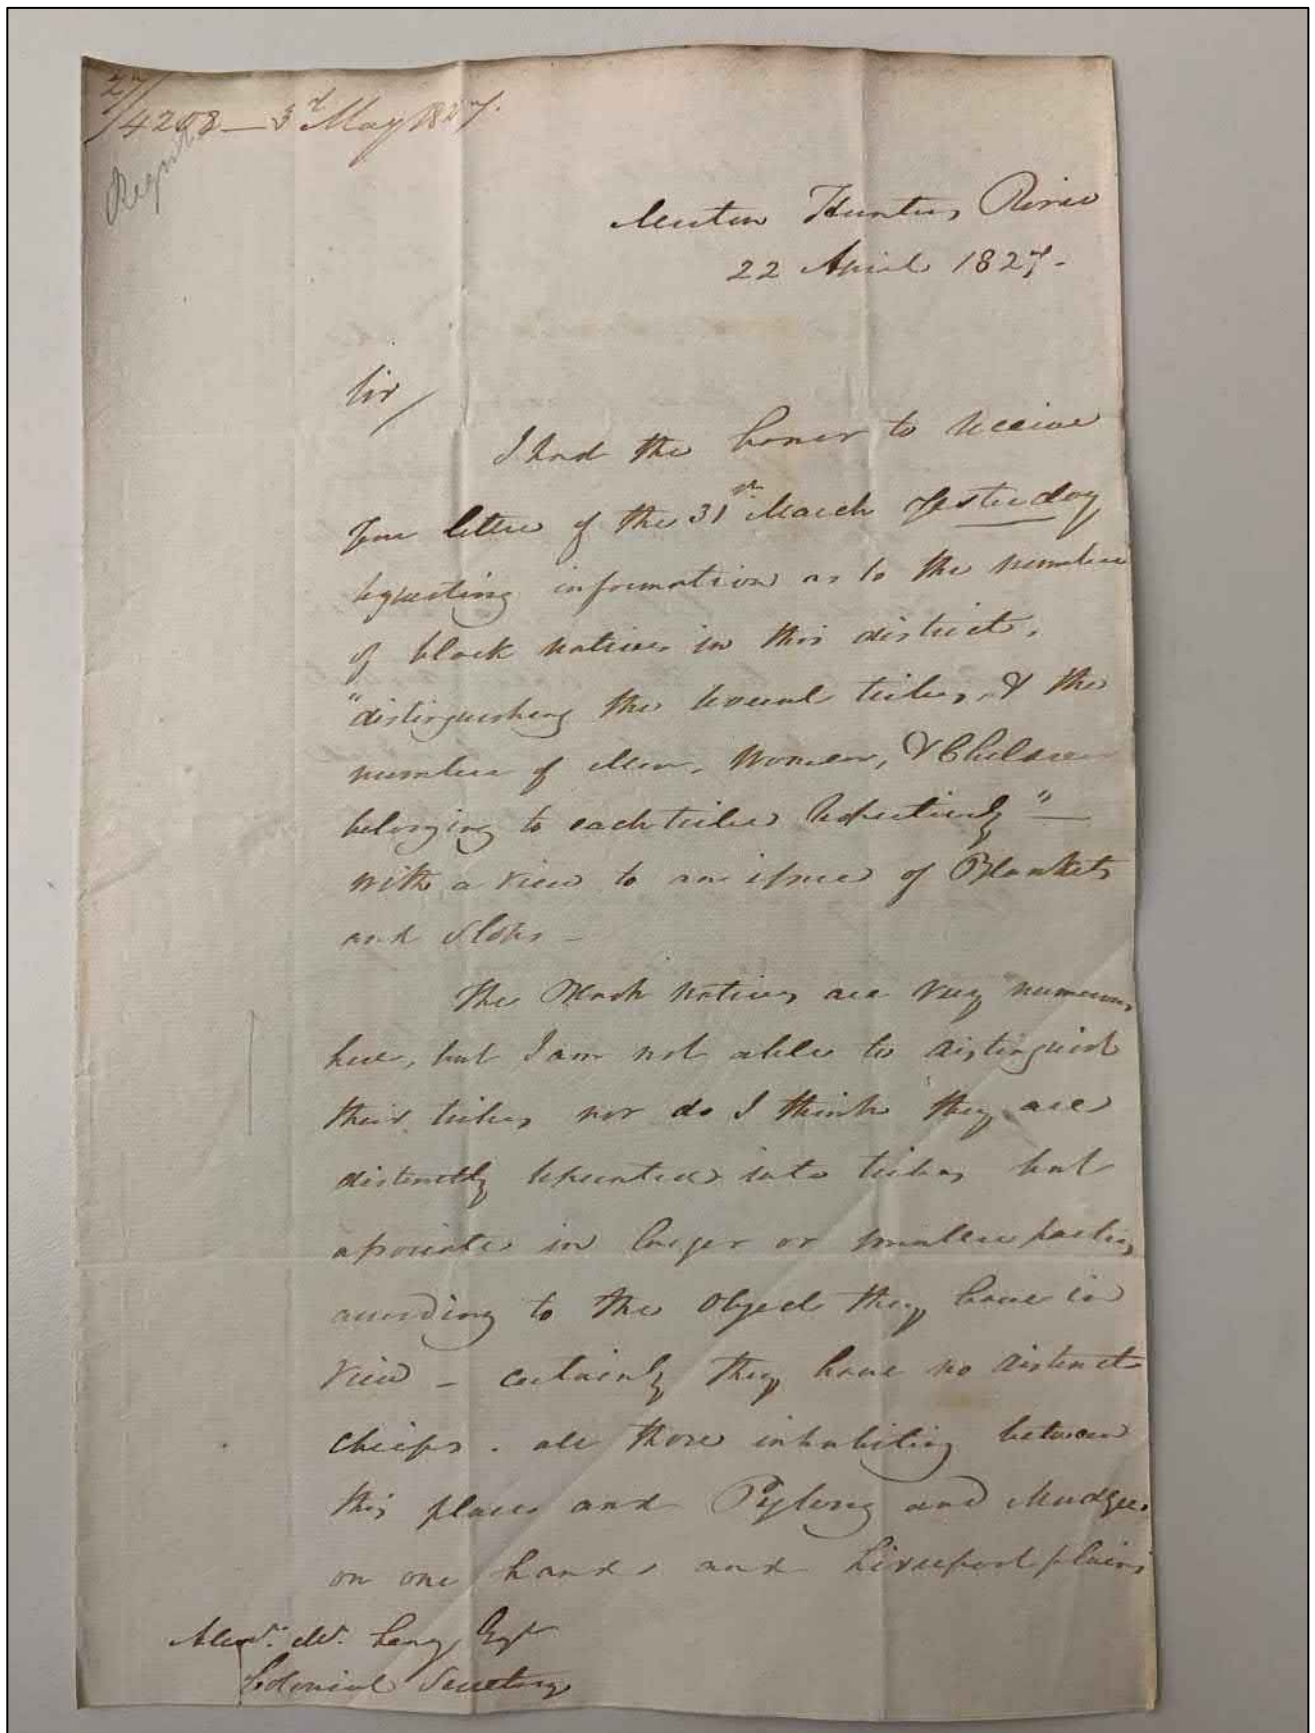 27/4208 — 3d May 1827.
Merton Hunters River
22 April 1827 -
Sir/
I had the honor to receive
your letter of the 31st March yesterday
requesting information as to the number
of black natives in this district,
"distinguishing the several tribes, & the
number of Men, Women, & Children
belonging to each tribe respectively" —
with a view to an issue of Blankets
and Slops -
The Black natives are very numerous
here, but I am not able to distinguish
their tribes nor do I think they are
distinctly separated into tribes but
associate in larger or smaller parties
according to the object they have in
view - certainly they have no distinct
chiefs. all those inhabiting between
this place and Pylong and Mudgee
on one hand, and Liverpool plains
Alexr. Mc. Leay Esqr
Colonial Secretary